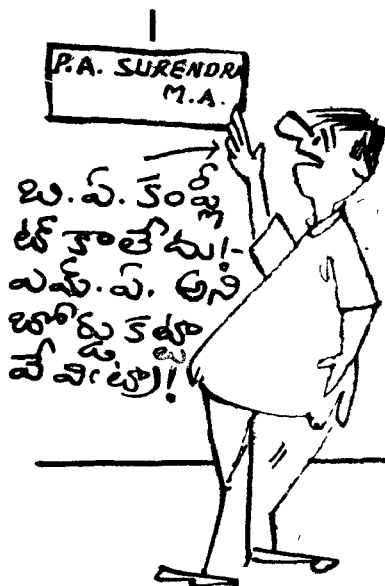 P.A. SURENDRA
M.A.
బి.ఏ. కంప్లీ
ట్ కాలేదు!-
ఎమ్.ఏ. అని
బోర్డు కట్టా
వేమిట్రా!